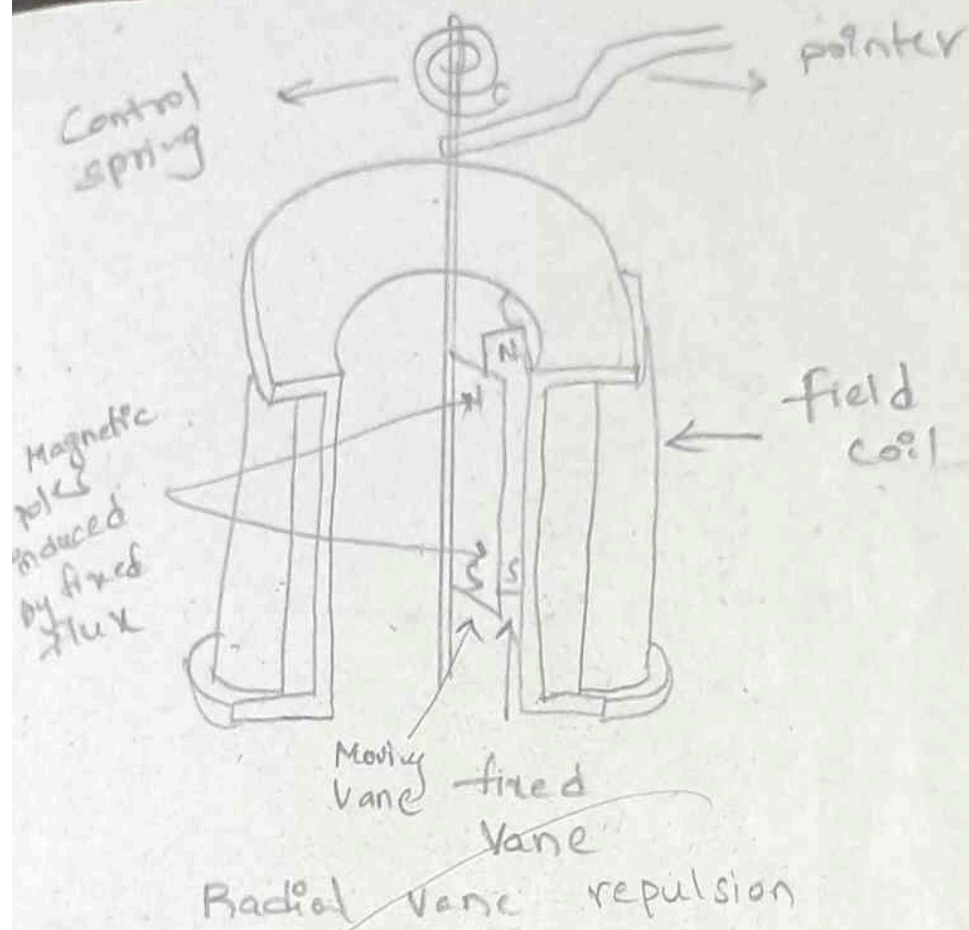 pointer
Control
spring
C
N
N
field
coil
Magnetic
poles
induced
by fixed
flux
S
S
Moving
Vane
fixed
Vane
Radial Vane repulsion